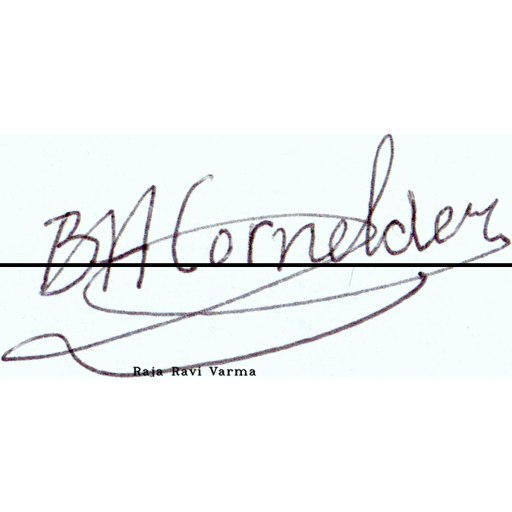 BACornelder
Raja Ravi Varma